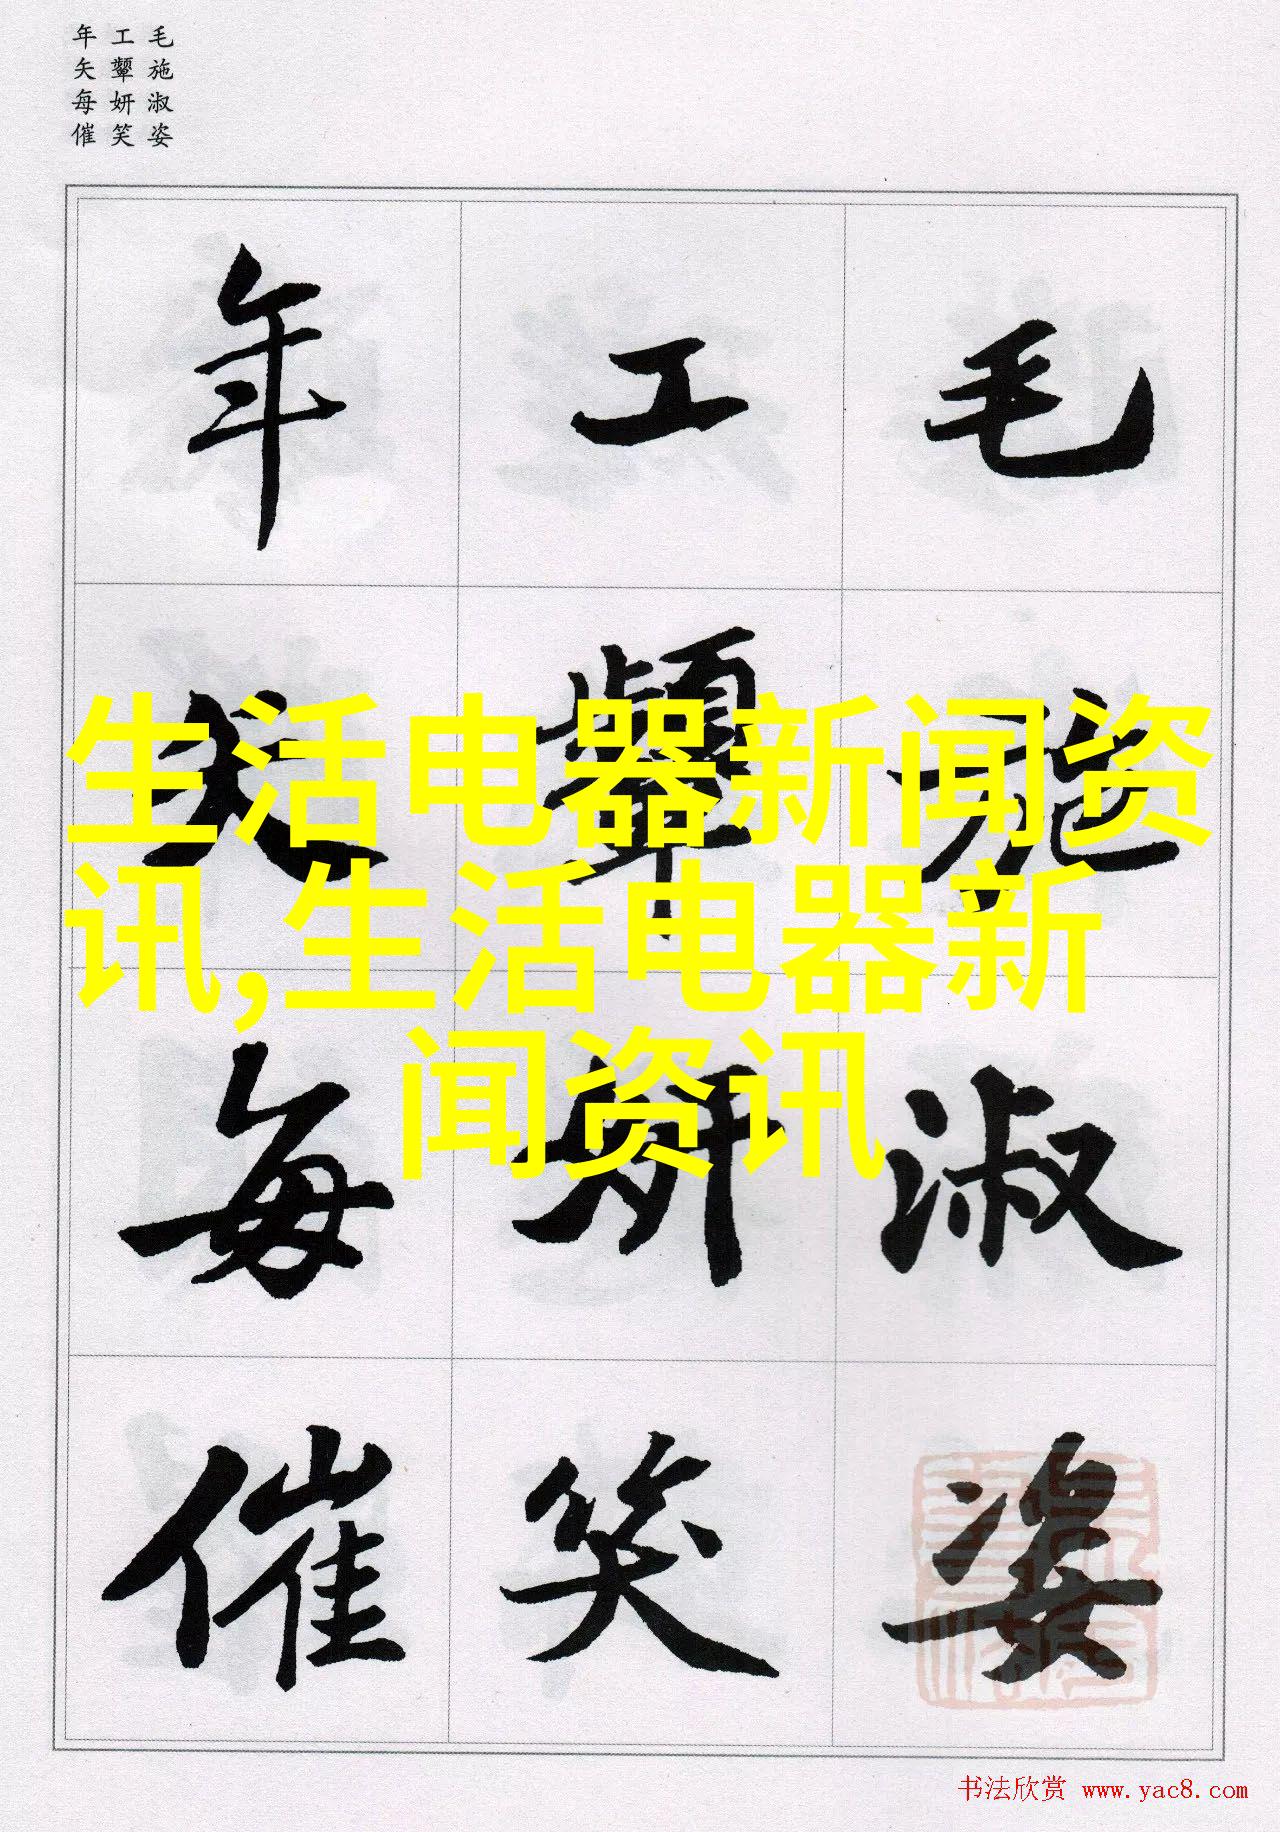 毛施淑姿
工颦妍笑
年矢每催
毛施淑姿
工颦妍笑
年矢每催
生活电器新闻资
讯,生活电器新
闻资讯
书法欣赏 www.yac8.com